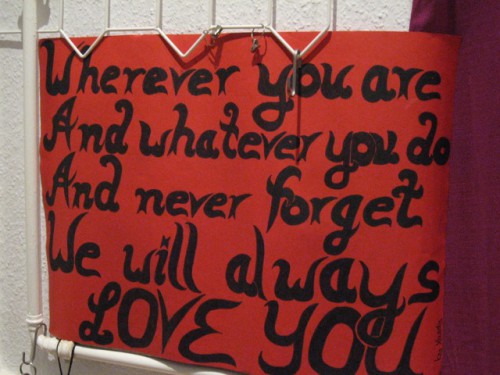 Wherever you are
And whatever you do
And never forget
We will always
LOVE YOU